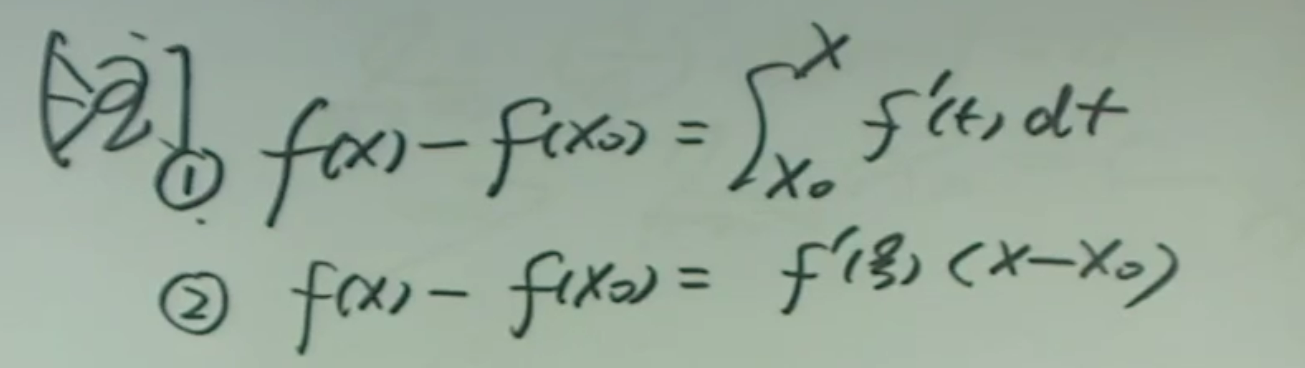 [注]
① f(x) - f(x₀) = ∫ₓ₀ˣ f'(t) dt
② f(x) - f(x₀) = f'(ξ) (x - x₀)